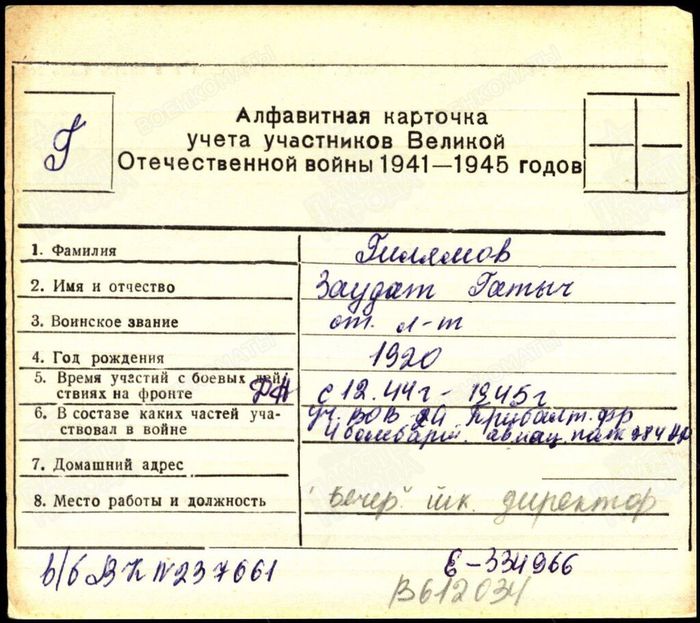 Г
Алфавитная карточка
учета участников Великой
Отечественной войны 1941—1945 годов
1. Фамилия Гилямов
2. Имя и отчество Заудат Гатыч
3. Воинское звание ст. л-т
4. Год рождения 1920
5. Время участий с боевых действиях на фронте с 12.44г - 1945г
6. В составе каких частей участвовал в войне уч. ВОВ Прибалт. фр
авиац. полк 284
7. Домашний адрес
8. Место работы и должность вечер. шк. директор
в/б ВК №237661
Е-334966
В612034
ВОЕНКОМАТЫ